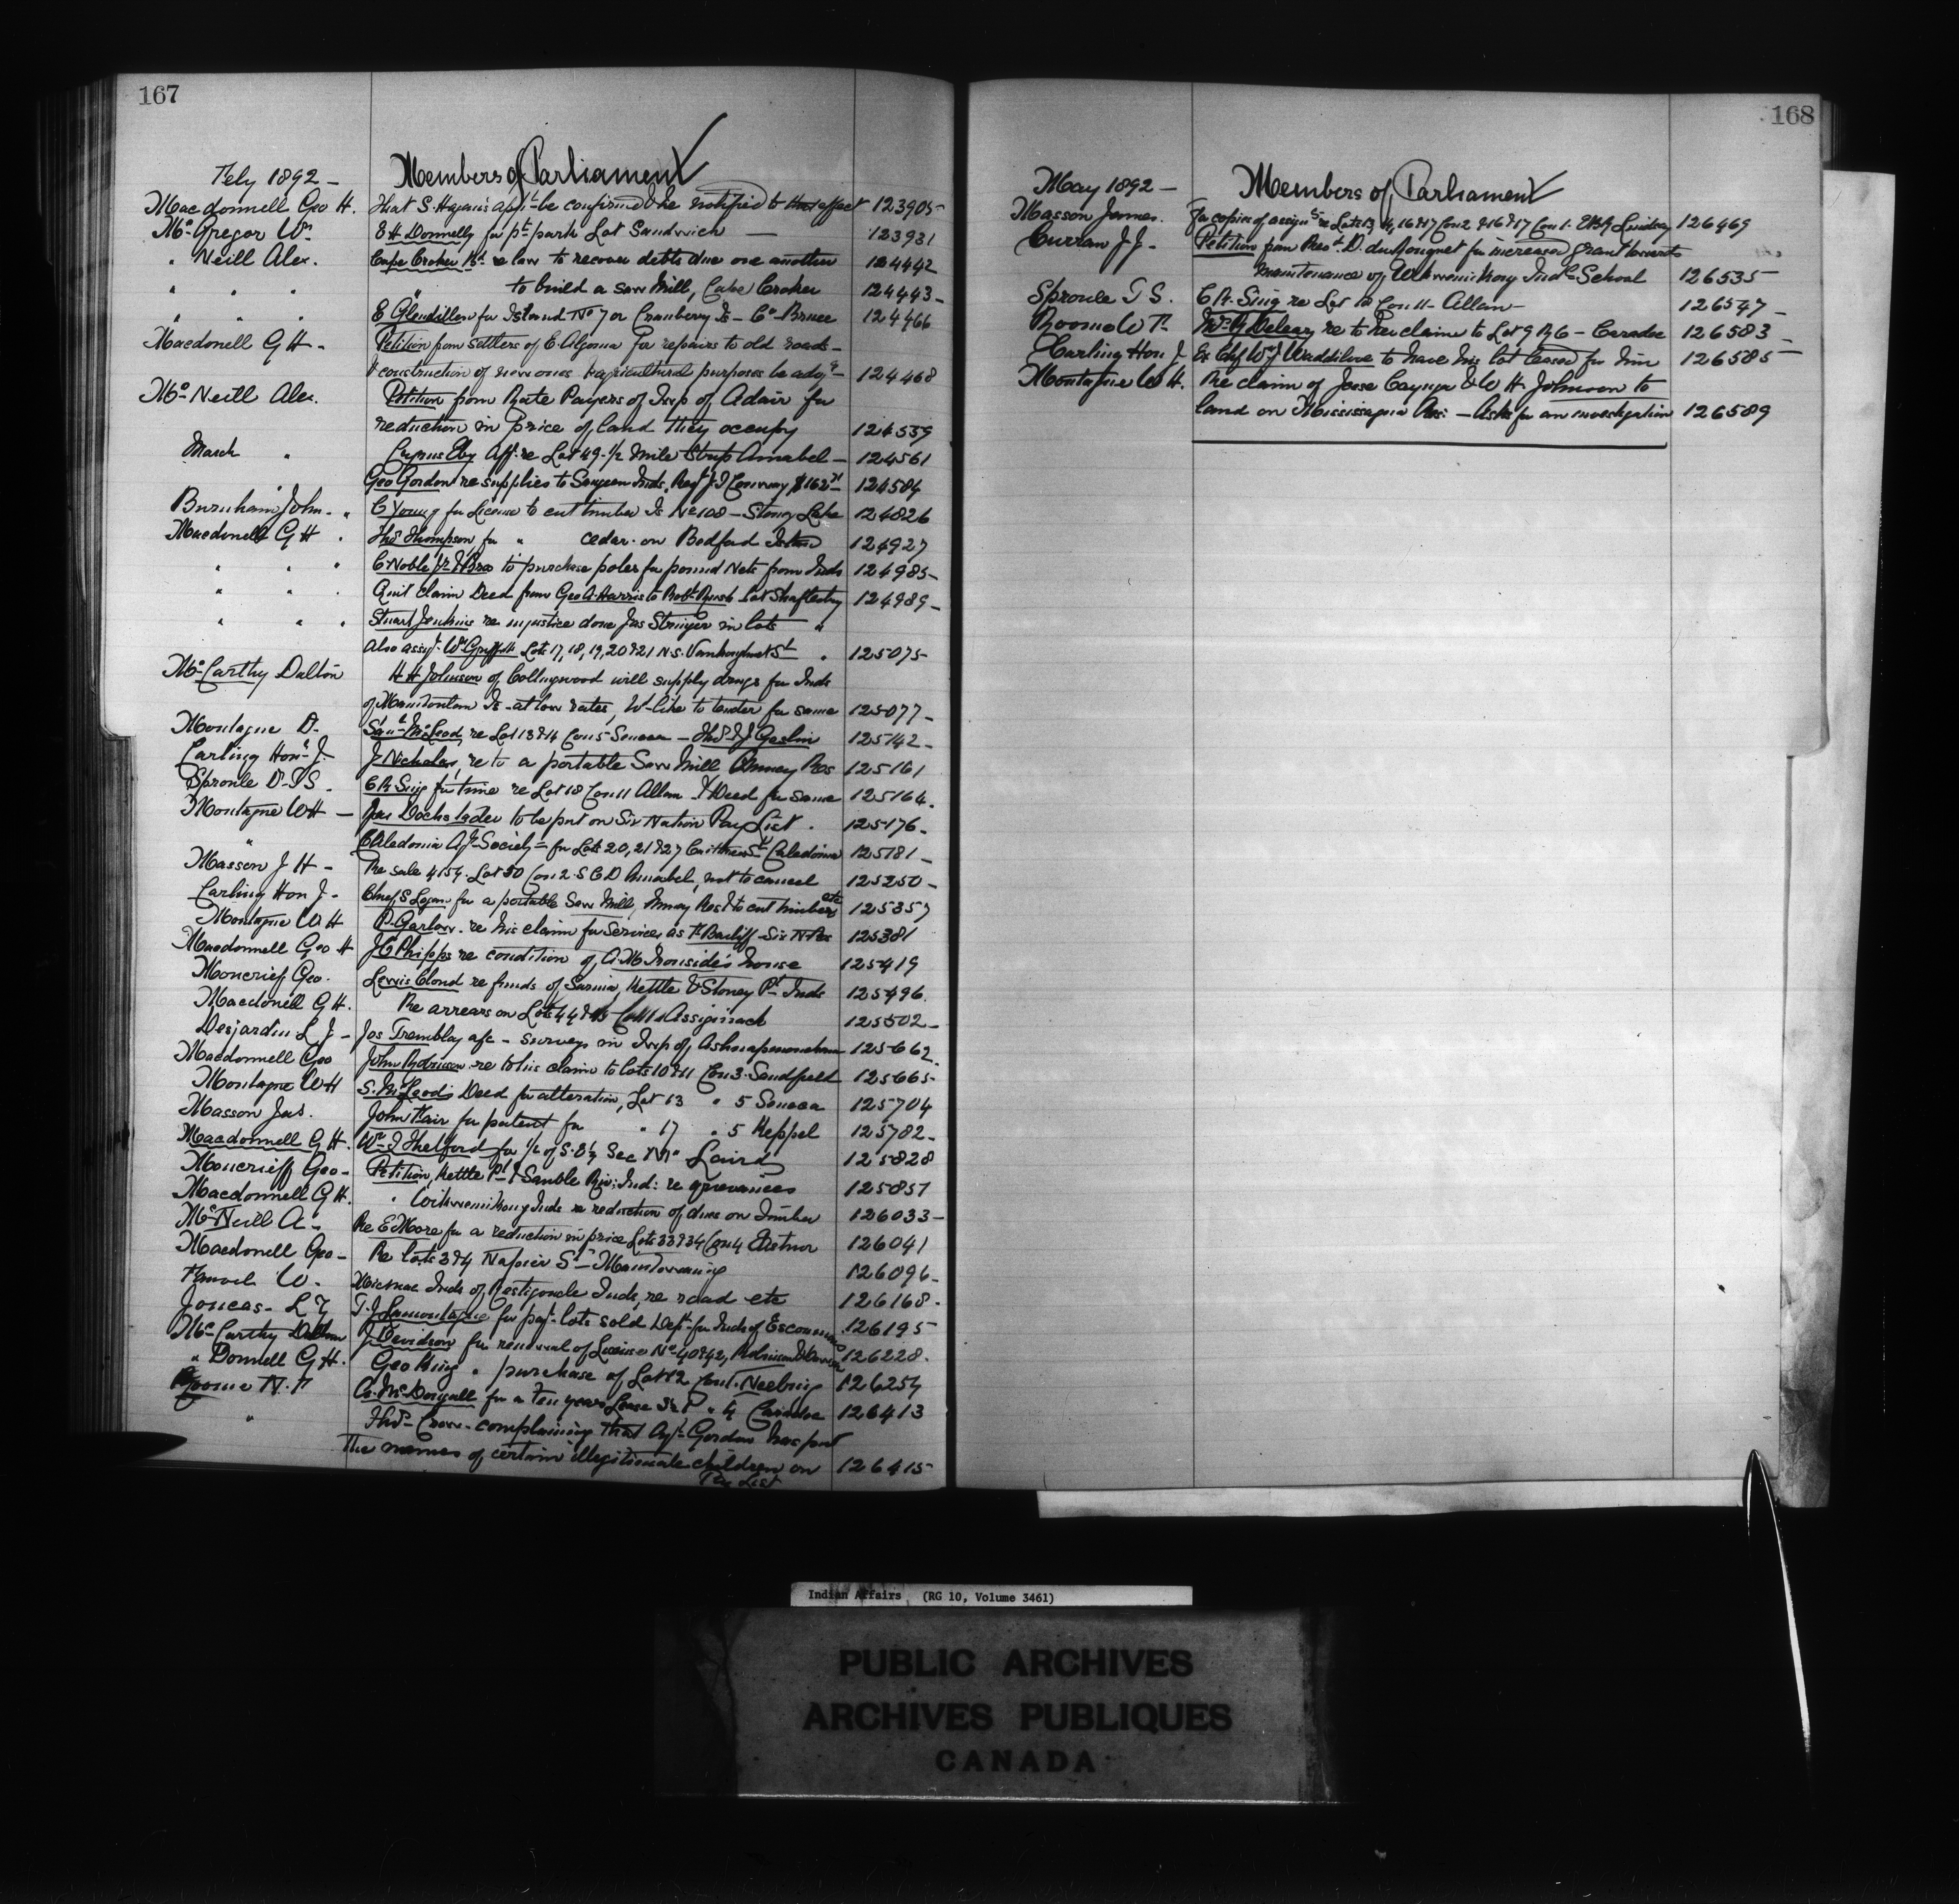 167
Feby 1892 - Members of Parliament
Macdonnell Geo H. That S. Hagan's appt be confirmed & he notified to that effect 123905
McGregor Wm E H Donnelly for pt park Lot Sandwich 123931
" Neill Alex. Cape Croker Bd re law to recover debts due one another 124442
" " " " to build a saw Mill, Cape Croker 124443
" " " E Glendillen for Island No 7 or Cranberry Is - Co Bruce 124466
Macdonell G H - Petition from settlers of E. Algoma for repairs to old roads -
& construction of new ones & agricultural purposes be 124468
McNeill Alex. Petition from Rate Payers of Twp of Adair for
reduction in price of land they occupy 124539
March " Cyrus Eby Aff. re Lot 49 - 1/2 Mile Strip Amabel - 124561
Geo Gordon re supplies to Saugeen Inds. J J Conway 124584
Burnham John - " C Young for License to cut timber Is No 108 - Stoney Lake 124826
Macdonell G H " Thos Thompson for " cedar on Bedford Island 124927
" " " C Noble Jr & Bro to purchase poles for pound Nets from Inds 124985
" " " Quit claim Deed from Geo A Harris to Robt Rush Lot Shaftesbury 124989
" " " Stuart Jenkins re injustice done Jas Stringer in lots "
Also assgt Wm Griffith Lots 17, 18, 19, 20 & 21 N.S. St " 125075
McCarthy Dalton H H Johnson of Collingwood will supply drugs for Inds
of Manitoulin Is - at low rates, W- like to tender for same 125077
Montague D. Saml McLeod, re Lot 13 & 14 Con 5 Seneca - Thos J Geslin 125142
Carling Hon J. J Nicholas, re to a portable Saw Mill Oneney Res 125161
Sproule D - T S. C R Sing for time re Lot 18 Con 11 Allan & Deed for same 125164.
Montague W H - Jas Dochstader to be put on Six Nation Pay List. 125176
" Caledonia Agl Society - for Lots 20, 21 & 27 St Caledonia 125181
Masson J H - Re sale 4154. Lot 30 Con 2. S C D Amabel, not to cancel 125250
Carling Hon J - Chief S Logan for a portable Saw Mill, Munsey Res & to cut timber etc 125357
Montague W H P. Garlow re his claim for Services as Bailiff Six N. Res 125381
Macdonnell Geo H J C Phipps re condition of A. M. Ironside's house 125419
Moncrieff Geo. Lewis Cloud re funds of Sarnia, Kettle & Stoney Pt Inds 125496.
Macdonell G H. Re arrears on Lots 44 & 45 Con 11 Assiginack 125502
Desjardin L. J - Jos Tremblay afc - surveys in Twp of 125662
Macdonnell Geo John Robinson re to his claim to lots 10 & 11 Con 3. Sandfield 125665
Montague W H S. McLeod's Deed for alteration, Lot 13 " 5 Seneca 125704
Masson Jas. John Hair for patent for " 17 " 5 Keppel 125782
Macdonnell G H. Wm J Thelford for 1/2 of S. E 1/4 Sec Laird 125828
Moncrieff Geo - Petition, Kettle Pt & Sauble Riv: Ind: re grievances 125851
Macdonnell G H. " Wikwemikong Inds re reduction of dues on Timber 126033
McNeill A - Re E Moore for a reduction in price Lots 33 & 34 Con 4 Eastnor 126041
Macdonell Geo - Re lots 3 & 4 Napier St - Manitowaning 126096
W. Micmac Inds of Restigouche Inds, re road etc 126168
Joncas - L Z T. J Lamontagne for pat. lots sold Dept. for Inds of 126195
McCarthy Dalton J Davidson for renewal of License No 40 & 42, Robinson 126228.
" Donnell G H. Geo King " purchase of Lot 12 Con 1. Neebing 126254
Roome W. F A. McDougall for a Ten years Lease " 4 Caradoc 126413
" Thos - Crow - complaining that Agt Gordon has put
the names of certain illegitimate children on 126415
Pay List
168
May 1892 - Members of Parliament
Masson James. For copies of assgnts re Lots 13, 14, 16 & 17 Con 2 & 16 & 17 Con 1. EBR Lindsay 126469
Curran J J - Petition from Revd. D. duRonquet for increased grant towards
maintenance of Wikwemikong Indl School 126535
Sproule T S. C R. Sing re Lot 18 Con 11 - Allan 126547
Roome W F. Mrs G Deleary re to her claim to Lot 9 R 6 - Caradoc 126583
Carling Hon J Ex Chf Wm J Waddilove to have his lot leased for him 126585
Montague W H. Re claim of Jesse Cayuga & W H Johnson to
land on Mississagua Res: - Asks for an investigation 126589
Indian Affairs (RG 10, Volume 3461)
PUBLIC ARCHIVES
ARCHIVES PUBLIQUES
CANADA